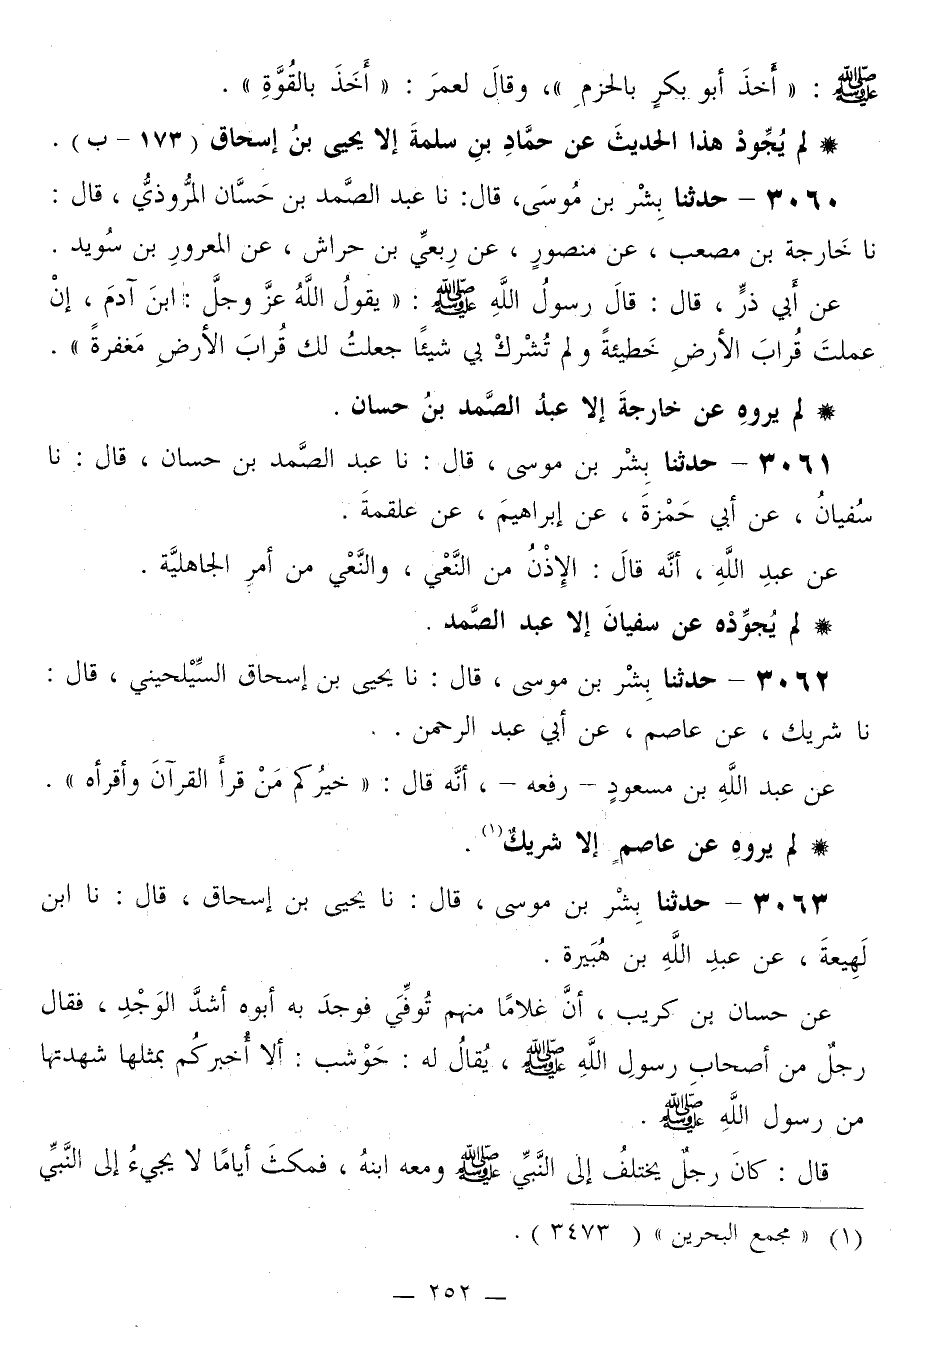 ﷺ : « أَخذَ أبو بكرٍ بالحزمِ »، وقالَ لعمرَ : « أَخَذَ بالقُوَّةِ » .
* لم يُجِّودْ هذا الحديثَ عن حمَّادِ بنِ سلمةَ إلا يحيى بنُ إسحاق ( ١٧٣ – ب ) .
٣٠٦٠ – حدثنا بِشْر بن مُوسَى، قال: نا عبد الصَّمد بن حَسَّان المَرُّوذيُّ ، قال :
نا خَارجة بن مصعب ، عن منصورٍ ، عن رِبعيِّ بن حراش ، عن المعرورِ بن سُويد .
عن أَبي ذرٍّ ، قال : قالَ رسولُ اللَّهِ ﷺ : « يقولُ اللَّهُ عزَّ وجلَّ : ابنَ آدمَ ، إنْ
عملتَ قُرابَ الأرضِ خَطيئةً و لم تُشْركْ بي شيئًا جعلتُ لك قُرابَ الأرضِ مَغفرةً » .
* لم يروهِ عن خارجةَ إلا عبدُ الصَّمد بنُ حسان .
٣٠٦١ – حدثنا بِشْر بن موسى ، قال : نا عبد الصَّمد بن حسان ، قال : نا
سُفيانُ ، عن أبي حَمْزةَ ، عن إبراهيمَ ، عن علقمةَ .
عن عبدِ اللَّهِ ، أنَّه قالَ : الإِذْنُ من النَّعْي ، والنَّعْي من أمرِ الجاهليَّة .
* لم يُجوِّدْه عن سفيانَ إلا عبد الصَّمد .
٣٠٦٢ – حدثنا بِشْر بن موسى ، قال : نا يحيى بن إسحاق السِّيْلحيني ، قال :
نا شريك ، عن عاصم ، عن أبي عبد الرحمن .
عن عبد اللَّهِ بن مسعودٍ – رفعه – ، أنَّه قال : « خيرُكم مَنْ قرأَ القرآنَ وأقرأه » .
* لم يروهِ عن عاصمٍ إلا شريكٌ(١) .
٣٠٦٣ – حدثنا بِشْر بن موسى ، قال : نا يحيى بن إسحاق ، قال : نا ابن
لَهِيعةَ ، عن عبدِ اللَّهِ بن هُبَيرة .
عن حسان بن كريب ، أنَّ غلامًا منهم تُوفِّيَ فوجدَ به أبوه أشدَّ الوَجْدِ ، فقال
رجلٌ من أصحابِ رسولِ اللَّهِ ﷺ ، يُقالُ له : حَوْشب : ألا أُخبركُم بمثلها شهدتها
من رسول اللَّهِ ﷺ .
قال : كانَ رجلٌ يختلفُ إلى النَّبيِّ ﷺ ومعه ابنهُ ، فمكثَ أيامًا لا يجيءُ إلى النَّبيِّ
(١) « مجمع البحرين » ( ٣٤٧٣ ) .
– ٢٥٢ –